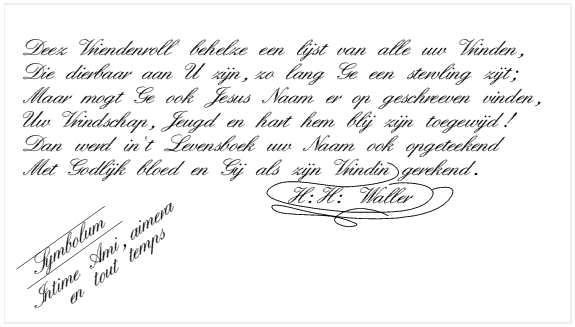 Deez Vriendenroll' behelze een lijst van alle uw Vrinden,
Die dierbaar aan U zijn, zo lang Ge een sterвling zijt;
Maar mogt Ge ook Jesus Naam er op geschreeven vinden,
Uw Vrindschap, Jeugd en hart hem blij zijn toegewijd!
Dan werd in't Levensboek uw Naam ook opgeteekend
Met Godlijk bloed en Gij als zijn Vrindin gerekend.
H: H: Waller
Symbolum
Intime Ami, aimera
en tout temps